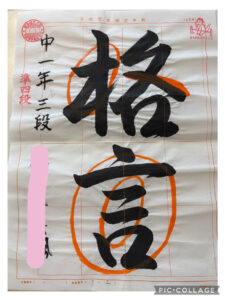 格言
中一年三段
準四段
PIC•COLLAGE